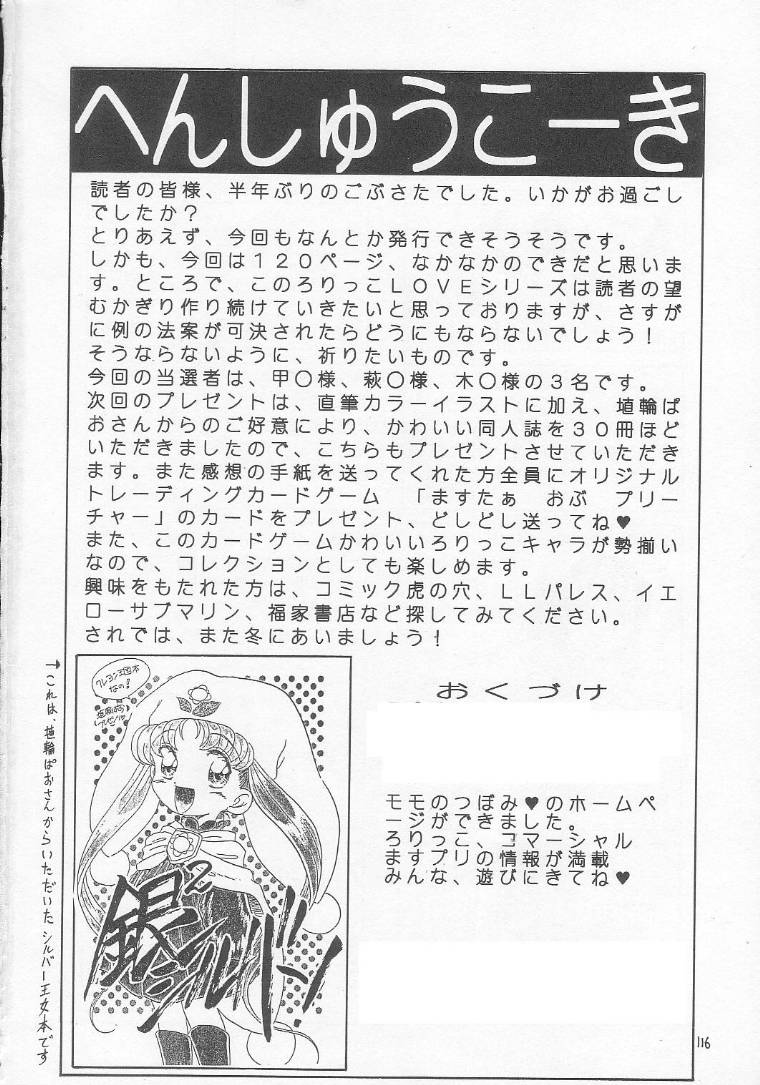 へんしゅうこーき
読者の皆様、半年ぶりのごぶさたでした。いかがお過ごし
でしたか？
とりあえず、今回もなんとか発行できそうそうです。
しかも、今回は１２０ページ、なかなかのできだと思いま
す。ところで、このろりっこＬＯＶＥシリーズは読者の望
むかぎり作り続けていきたいと思っておりますが、さすが
に例の法案が可決されたらどうにもならないでしょう！
そうならないように、祈りたいものです。
今回の当選者は、甲〇様、萩〇様、木〇様の３名です。
次回のプレゼントは、直筆カラーイラストに加え、埴輪ぱ
おさんからのご好意により、かわいい同人誌を３０冊ほど
いただきましたので、こちらもプレゼントさせていただき
ます。また感想の手紙を送ってくれた方全員にオリジナル
トレーディングカードゲーム　「ますたぁ　おぶ　プリー
チャー」のカードをプレゼント、どしどし送ってね♥
また、このカードゲームかわいいろりっこキャラが勢揃い
なので、コレクションとしても楽しめます。
興味をもたれた方は、コミック虎の穴、ＬＬパレス、イエ
ローサブマリン、福家書店など探してみてください。
されでは、また冬にあいましょう！
→これは、埴輪ぱおさんからいただいたシルバー王女本です
クレヨン王国本
なの！
銀²
シルバーン
おくづけ
モモのつぼみ♥のホームペ
ージができました。
ろりっこ、コマーシャル
ますプリの情報が満載
みんな、遊びにきてね♥
116